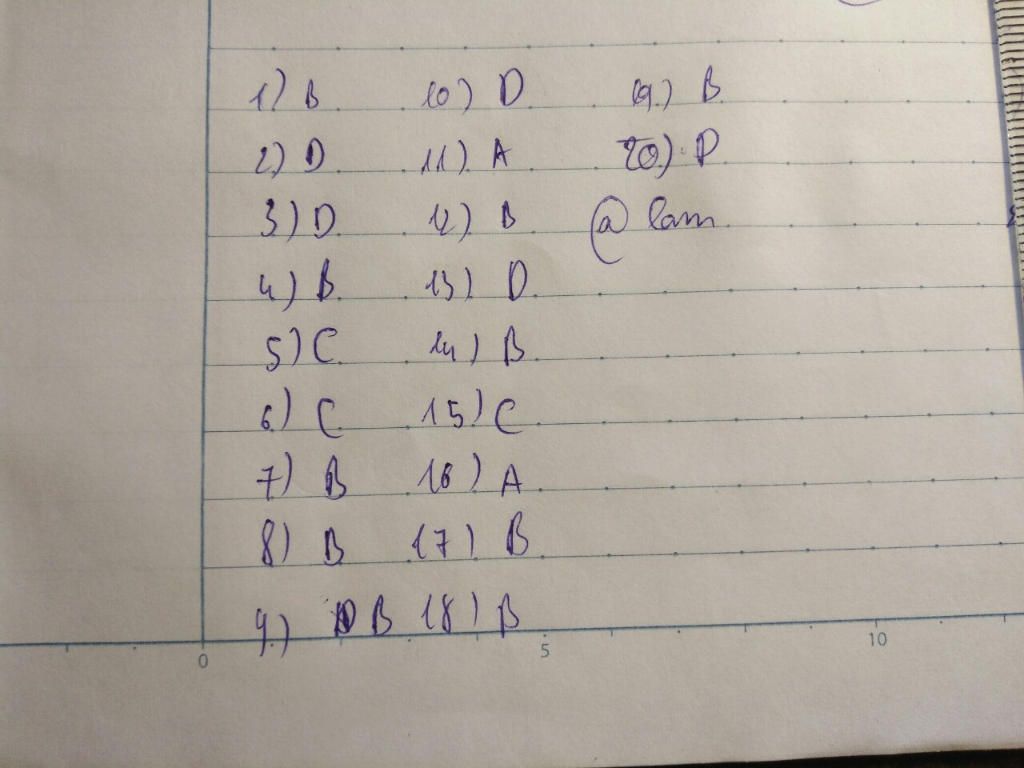 1) B 10) D 19.) B
2) D 11) A 20.) D
3) D 12) B @ lam
4) B 13) D
5) C 14) B
6) C 15) C
7) B 16) A
8) B 17) B
9.) B 18) B
0 5 10